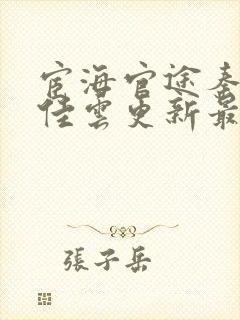 宦海官途秦
佳雲更新最
張子岳